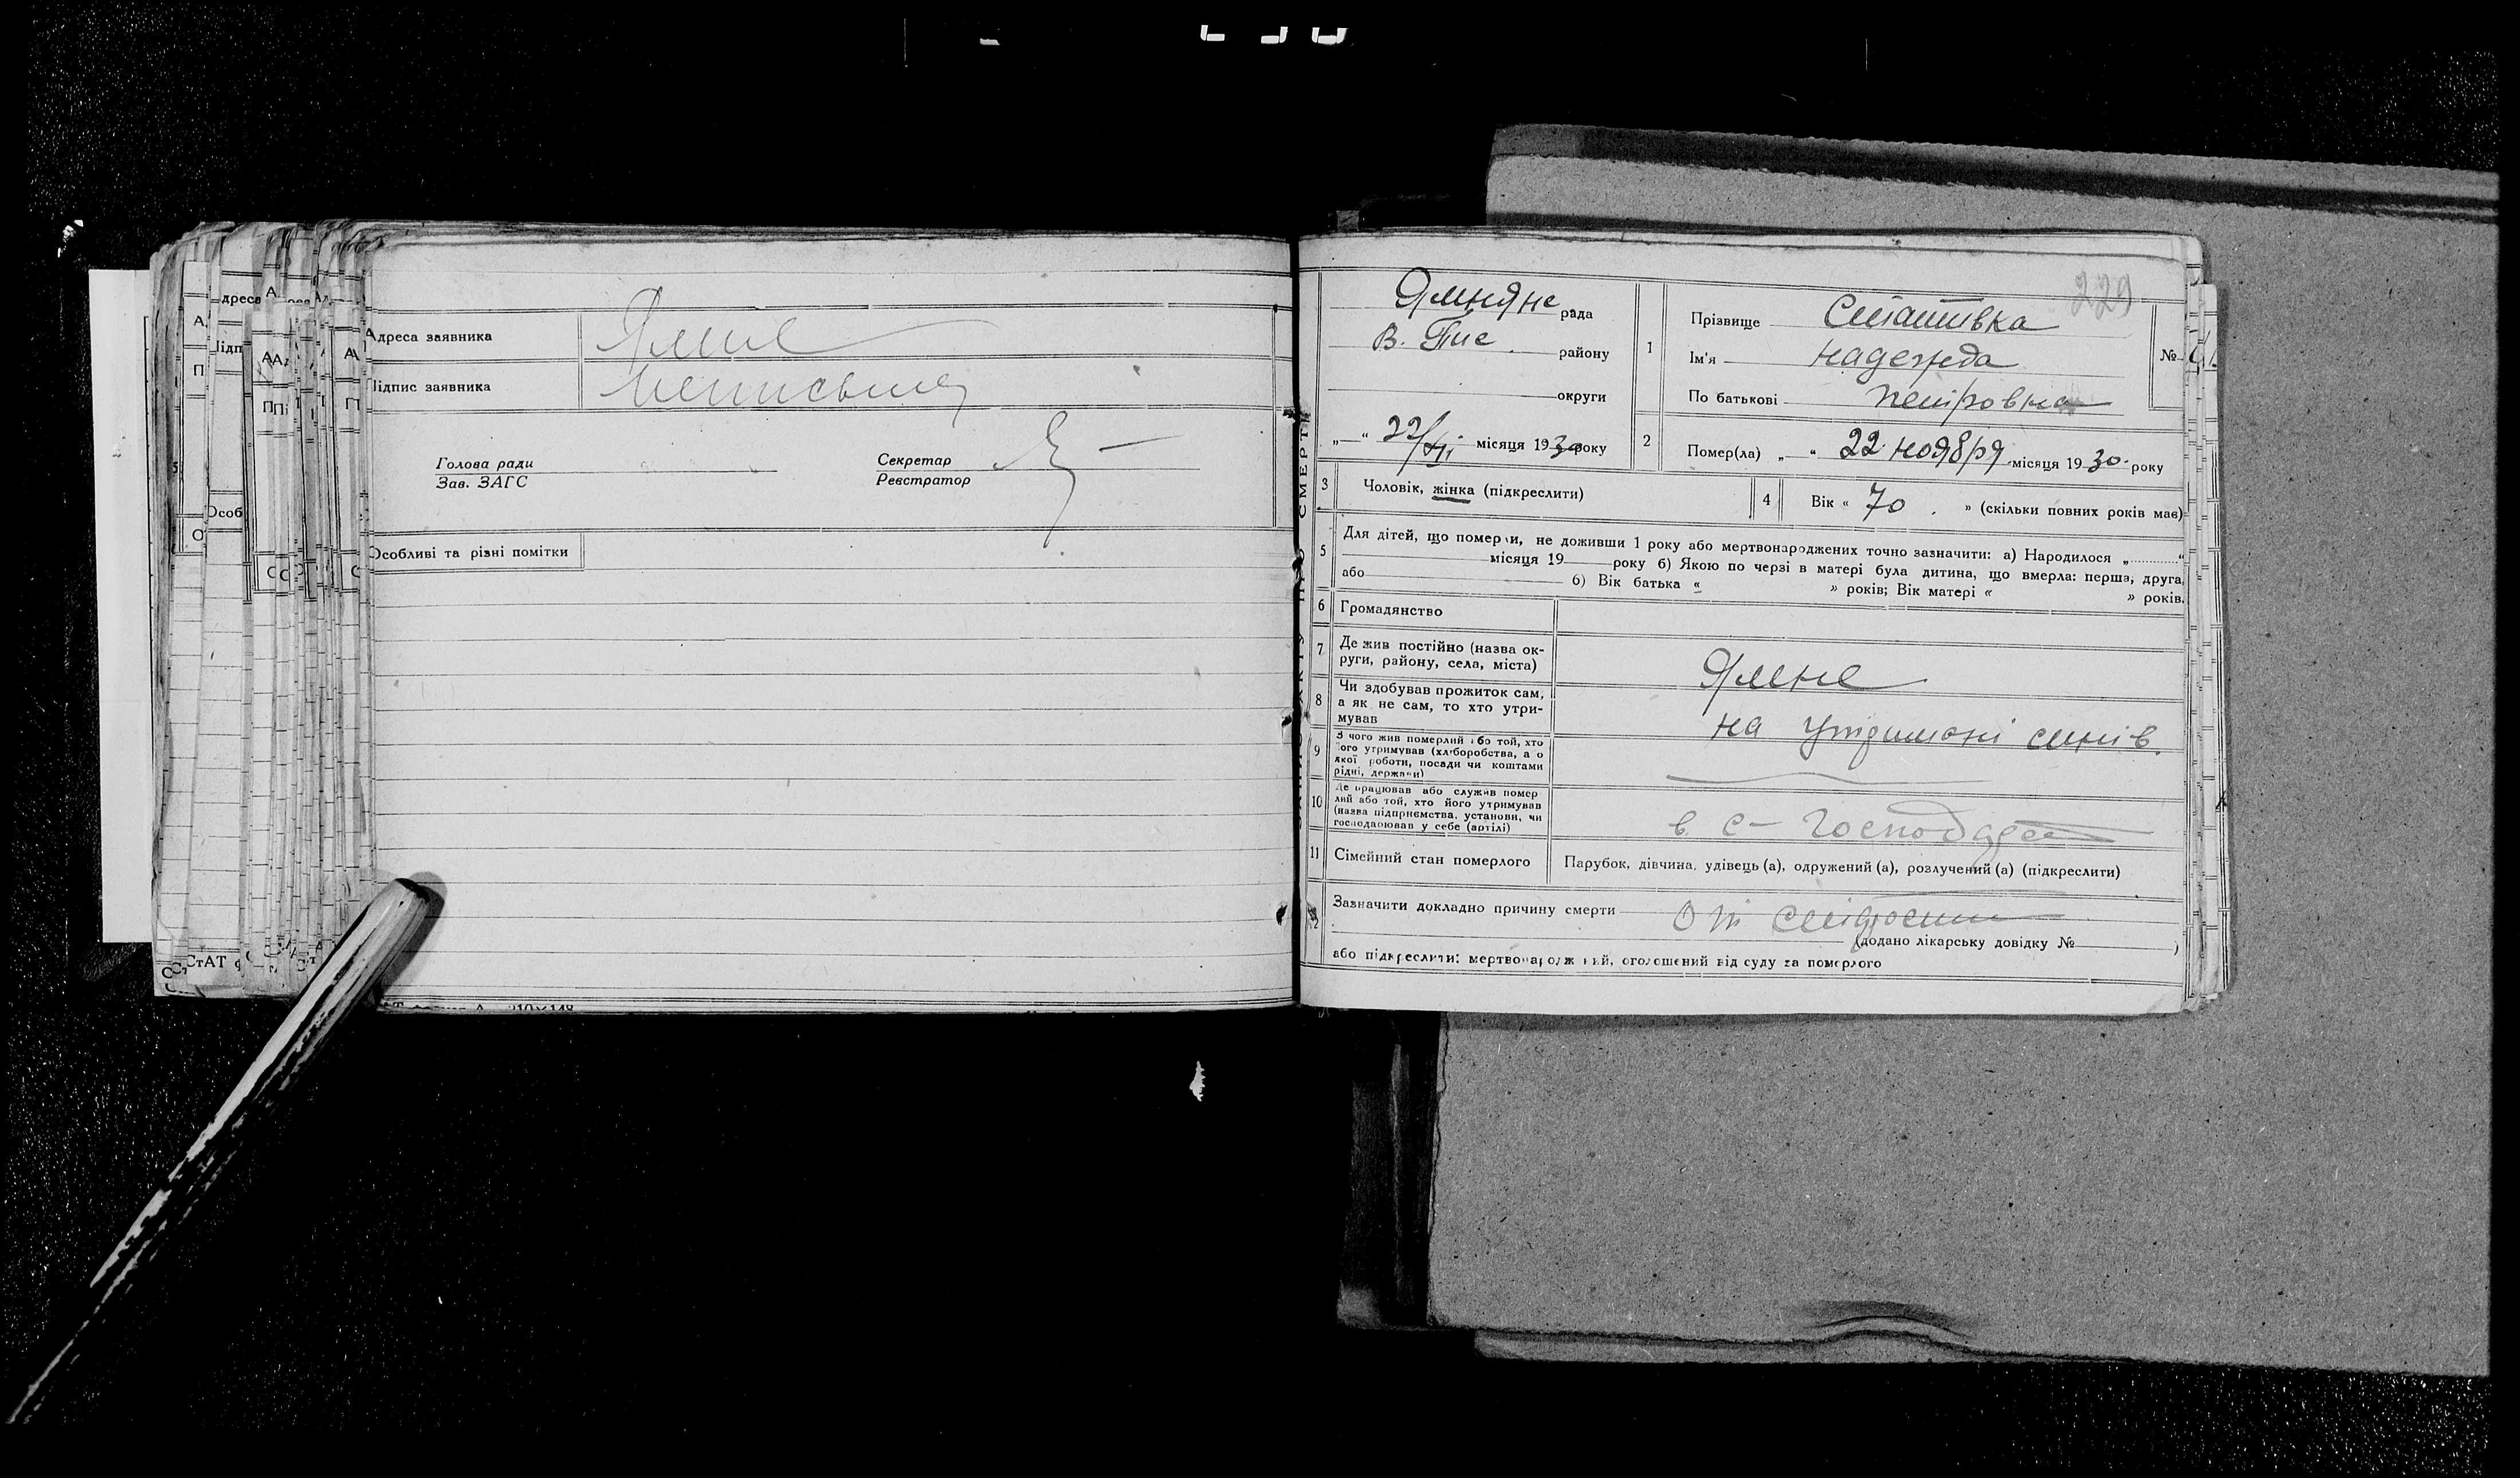 Адреса заявника Ямне
Підпис заявника
Голова ради
Зав. ЗАГС
Секретар
Реєстратор
Особливі та різні помітки
229
Ямняне рада
В. Пис. району
округи
„ “ 22/XI місяця 1930 року
1 Прізвище Сташівка
Ім'я Надежда
По батькові Петровна
№
2 Помер(ла) „ “ 22 ноября місяця 1930 року
3 Чоловік, жінка (підкреслити)
4 Вік « 70 » (скільки повних років має)
5 Для дітей, що померли, не доживши 1 року або мертвонароджених точно зазначити: а) Народилося „ “
місяця 19 року б) Якою по черзі в матері була дитина, що вмерла: перша, друга,
або б) Вік батька « » років; Вік матері « » років.
6 Громадянство
7 Де жив постійно (назва ок-
руги, району, села, міста) Ямне
8 Чи здобував прожиток сам,
а як не сам, то хто утри-
мував на утримані синів
9 З чого жив померлий або той, хто
його утримував (хліборобства, а о
якої роботи, посади чи коштами
рідні, держави)
10 Де працював або служив помер
лий або той, хто його утримував
(назва підприємства, установи, чи
господарював у себе (артілі) в с-господарстві
11 Сімейний стан померлого Парубок, дівчина, удівець (а), одружений (а), розлучений (а) (підкреслити)
12 Зазначити докладно причину смерти От старости
(додано лікарську довідку № )
або підкреслити: мертвонароджений, оголошений від суду за померлого